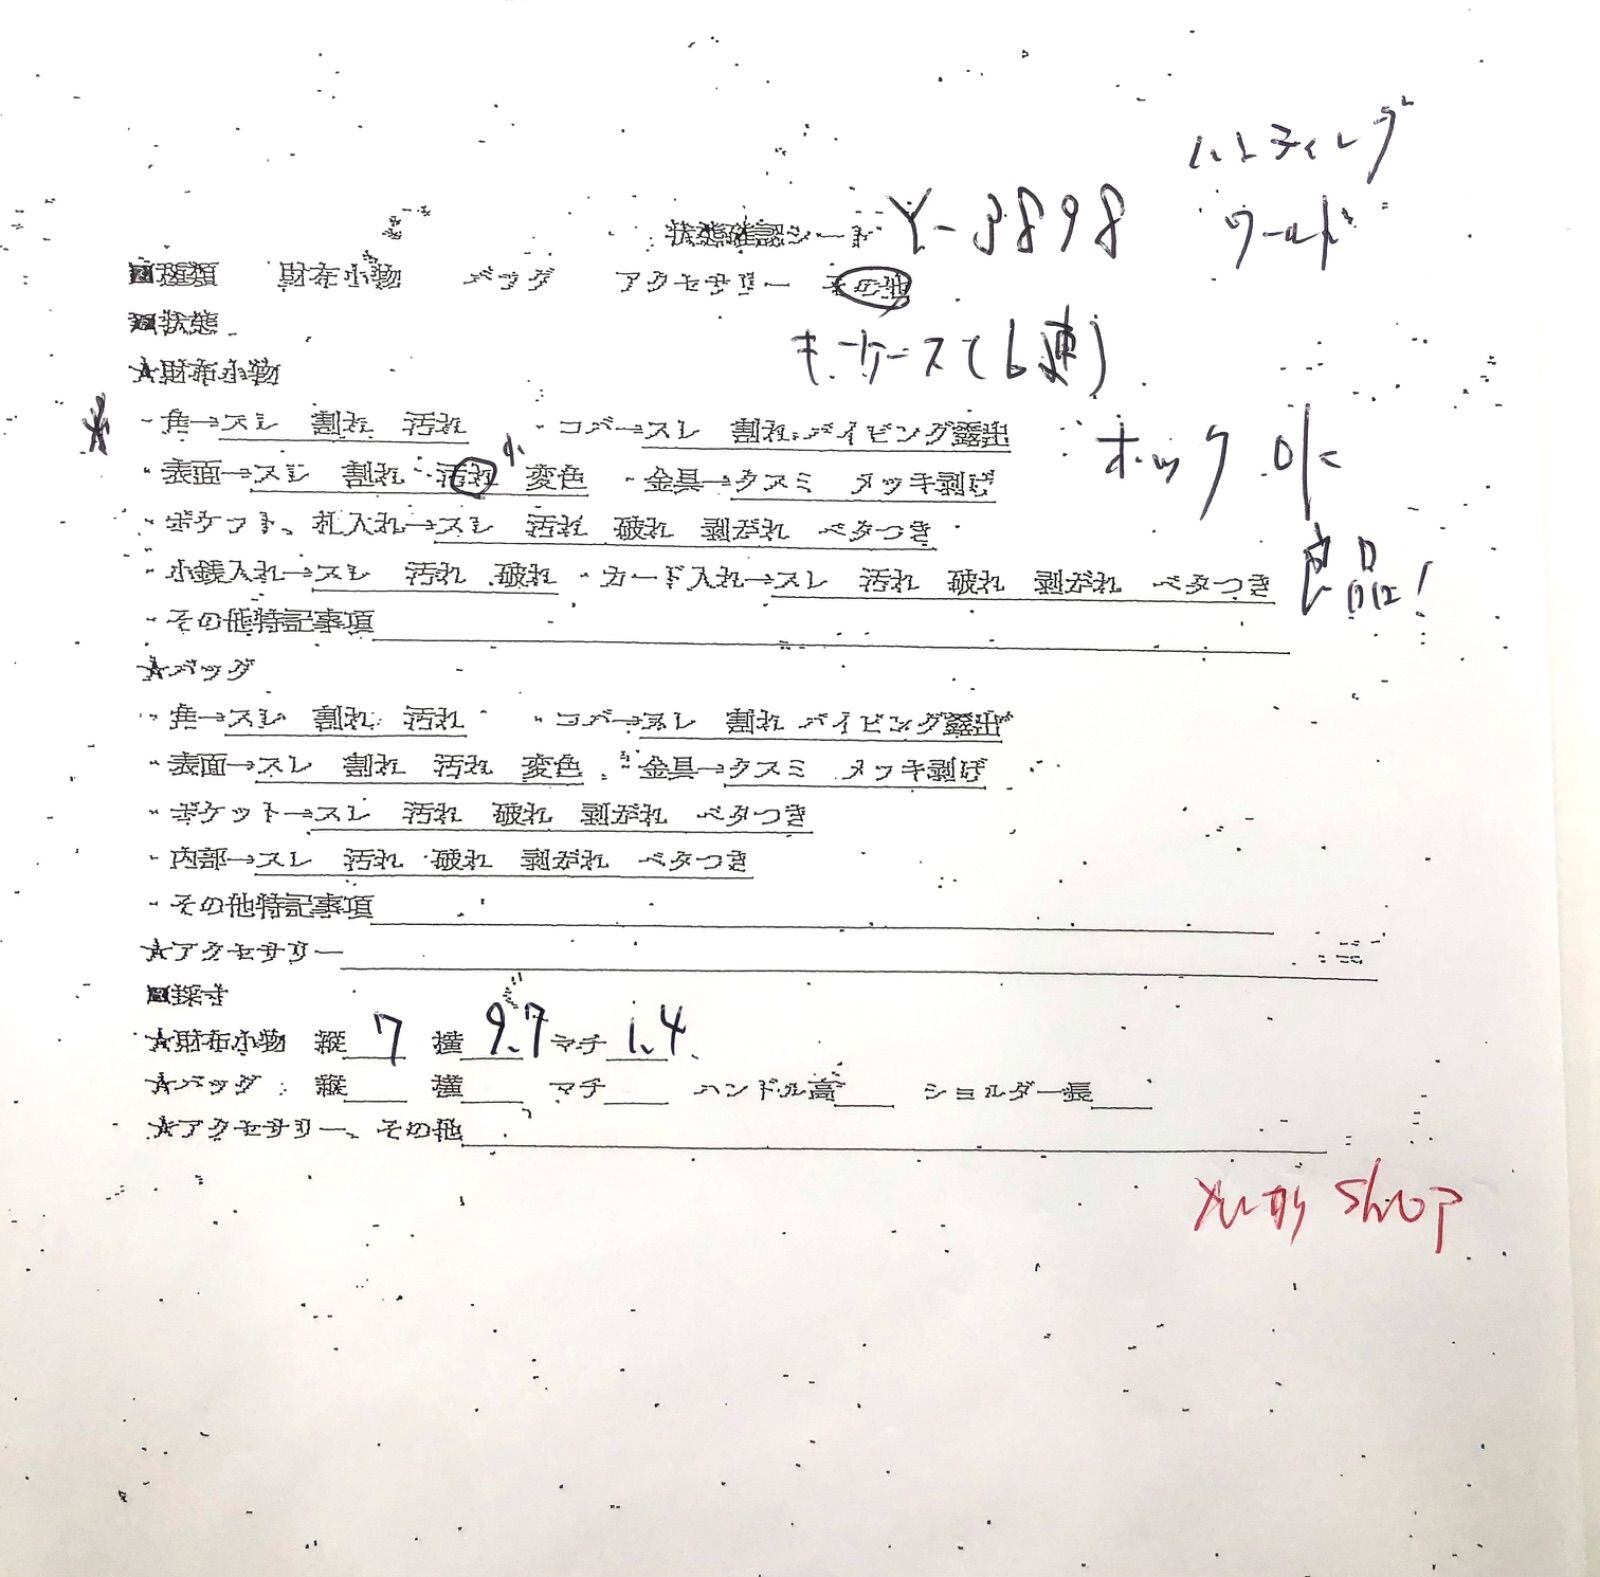 ハンティング
ワールド
状態確認シート Y-3898
■種類 財布小物 バッグ アクセサリー その他
■状態
キーケース(6連)
★財布小物
・角→スレ 割れ 汚れ ・コバ→スレ 割れ パイピング露出
ホック OK
・表面→スレ 割れ 汚れ 小 変色 ・金具→クスミ メッキ剥げ
・ポケット、札入れ→スレ 汚れ 破れ 剥がれ ベタつき
良品!
・小銭入れ→スレ 汚れ 破れ ・カード入れ→スレ 汚れ 破れ 剥がれ ベタつき
・その他特記事項
★バッグ
・角→スレ 割れ 汚れ ・コバ→スレ 割れ パイピング露出
・表面→スレ 割れ 汚れ 変色 ・金具→クスミ メッキ剥げ
・ポケット→スレ 汚れ 破れ 剥がれ ベタつき
・内部→スレ 汚れ 破れ 剥がれ ベタつき
・その他特記事項
★アクセサリー
■採寸
★財布小物 縦 7 横 9.7 マチ 1.4
★バッグ 縦 横 マチ ハンドル高 ショルダー長
★アクセサリー、その他
shop